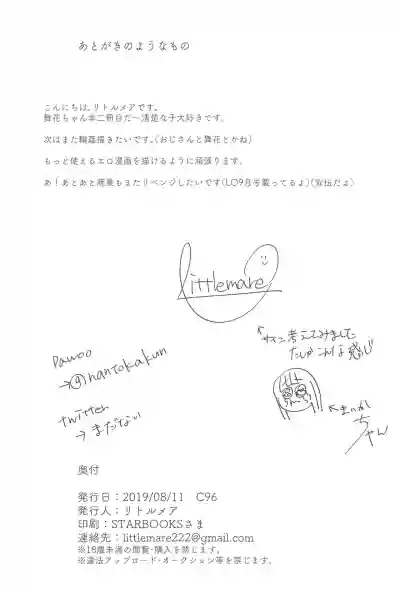 あとがきのようなもの
こんにちは、リトルメアです。
舞花ちゃん本二冊目だ〜清楚な子大好きです。
次はまた輪姦描きたいです。(おじさんと舞花とかね)
もっと使えるエロ漫画を描けるように頑張ります。
あ!あとあと商業もまたリベンジしたいです(LO9月号載ってるよ)(宣伝だよ)
littlemare
サイン考えてみました
たしかこんな感じ
pawoo
→@nantokakun
twitter
→まだない
ちゃん
奥付
発行日:2019/08/11 C96
発行人:リトルメア
印刷:STARBOOKSさま
連絡先:littlemare222@gmail.com
※18歳未満の閲覧・購入を禁じます。
※違法アップロード・オークション等を禁じます。